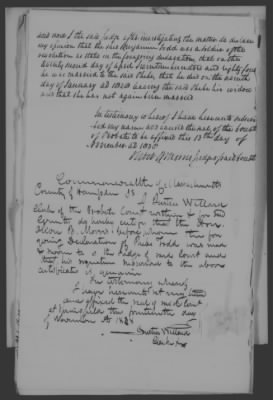 and now I the said Judge after investigating the matter do declare
my opinion that the said Benjamin Todd was a soldier of the
revolution as stated in the foregoing declaration, that on the
twenty second day of April Seventeen hundred and eighty four
he was married to the said Phebe, that he died on the seventh
day of January AD 1832 leaving the said Phebe his widow
and that she has not again been married
In testimony whereof I have hereunto subscri-
bed my name and caused the seal of the Court
of Probate to be affixed this 13th day of
November AD 1838
Oliver B Morris Judge of said Court
Commonwealth of Massachusetts
County of Hampden SS
I Justice Willard
Clerk of the Probate Court within & for the
County do hereby certify that the Hon.
Oliver B. Morris before whom the fore
going Declaration of Phebe Todd was made
& sworn to is the Judge of said Court and
that his signature subscribed to the above
certificate is genuine
In testimony whereof
I have hereunto set my hand
and affixed the seal of said Court
at Springfield this fourteenth day
of November AD 1838
Justice Willard
Clerk